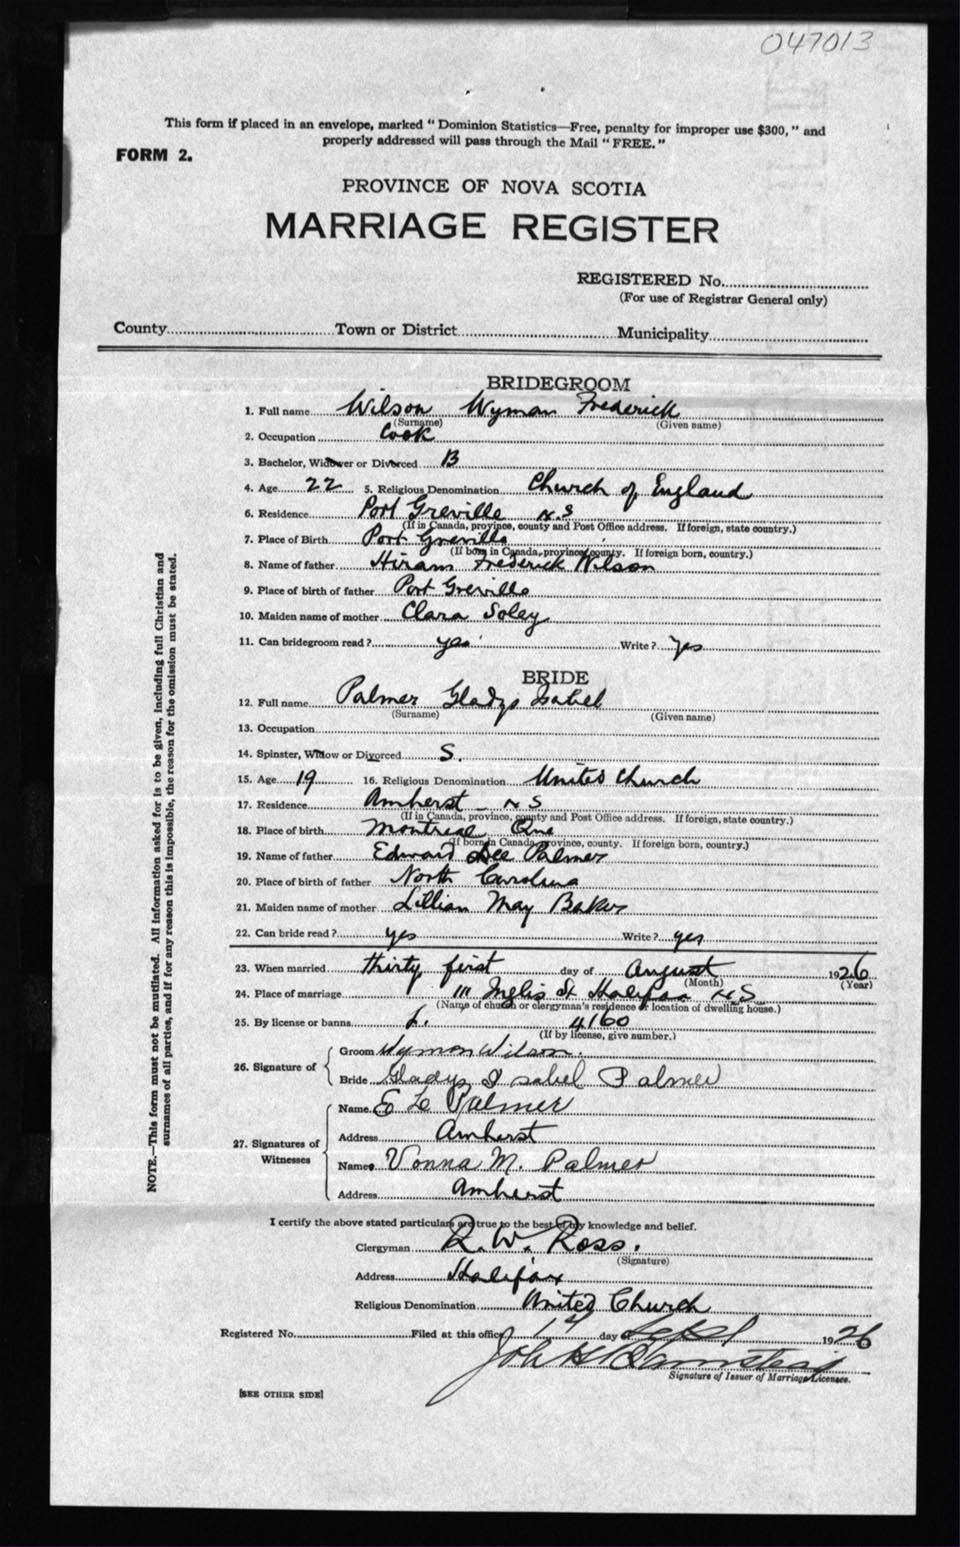 047013
This form if placed in an envelope, marked "Dominion Statistics—Free, penalty for improper use $300," and
properly addressed will pass through the Mail "FREE."
FORM 2.
PROVINCE OF NOVA SCOTIA
MARRIAGE REGISTER
REGISTERED No.
(For use of Registrar General only)
County Town or District Municipality
BRIDEGROOM
1. Full name Wilson Wyman Frederick
(Surname) (Given name)
2. Occupation Cook
3. Bachelor, Widower or Divorced B
4. Age 22 5. Religious Denomination Church of England
6. Residence Port Greville N.S
(If in Canada, province, county and Post Office address. If foreign, state country.)
7. Place of Birth Port Greville
(If born in Canada, province, county. If foreign born, country.)
8. Name of father Hiram Frederick Wilson
9. Place of birth of father Port Greville
10. Maiden name of mother Clara Soley
11. Can bridegroom read? yes Write? Yes
BRIDE
12. Full name Palmer Gladys Isabel
(Surname) (Given name)
13. Occupation
14. Spinster, Widow or Divorced S.
15. Age 19 16. Religious Denomination United Church
17. Residence Amherst N S
(If in Canada, province, county and Post Office address. If foreign, state country.)
18. Place of birth Montreal Que
(If born in Canada, province, county. If foreign born, country.)
19. Name of father Edward Lee Palmer
20. Place of birth of father North Carolina
21. Maiden name of mother Lillian May Baker
22. Can bride read? yes Write? yes
23. When married thirty first day of August 1926
(Month) (Year)
24. Place of marriage 111 Inglis St Halifax N.S
(Name of church or clergyman's residence or location of dwelling house.)
25. By license or banns L. 4160
(If by license, give number.)
26. Signature of
Groom Wyman Wilson.
Bride Gladys Isabel Palmer
27. Signatures of Witnesses
Name E L Palmer
Address Amherst
Name Vonna M. Palmer
Address Amherst
I certify the above stated particulars are true to the best of my knowledge and belief.
Clergyman R. W. Ross.
(Signature)
Address Halifax
Religious Denomination United Church
Registered No. Filed at this office day of Sept 1926
Signature of Issuer of Marriage Licenses.
[SEE OTHER SIDE]
NOTE.—This form must not be mutilated. All information asked for is to be given, including full Christian and
surnames of all parties, and if for any reason this is impossible, the reason for the omission must be stated.